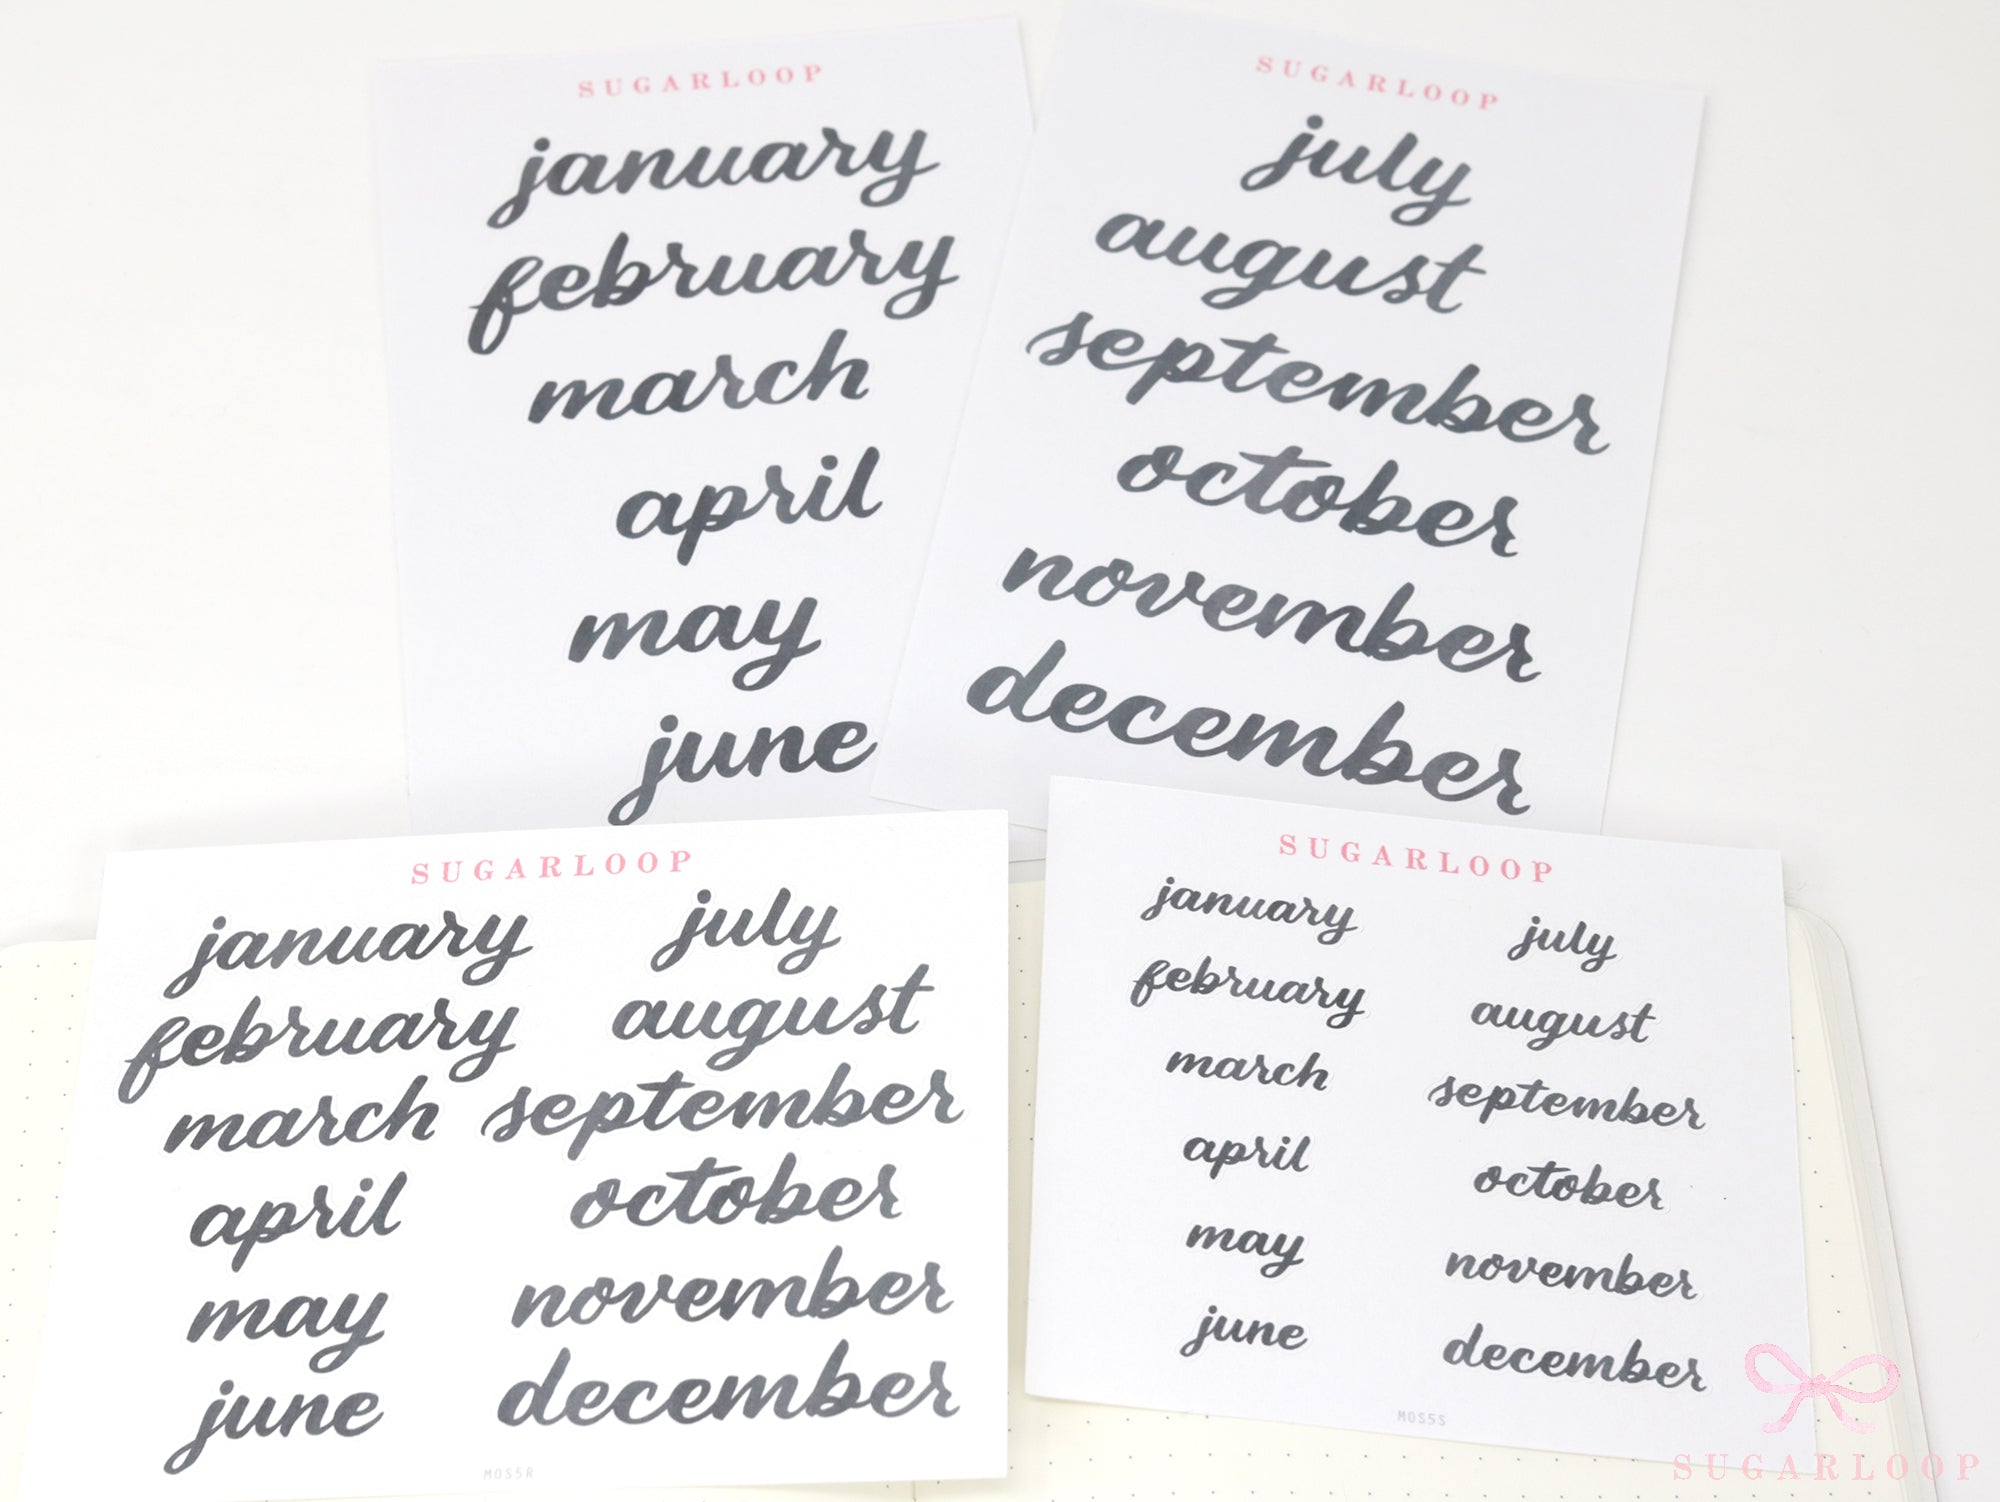 SUGARLOOP
january
february
march
april
may
june
SUGARLOOP
july
august
september
october
november
december
SUGARLOOP
january
february
march
april
may
june
july
august
september
october
november
december
MOS5R
SUGARLOOP
january
february
march
april
may
june
july
august
september
october
november
december
MOS5S
SUGARLOOP